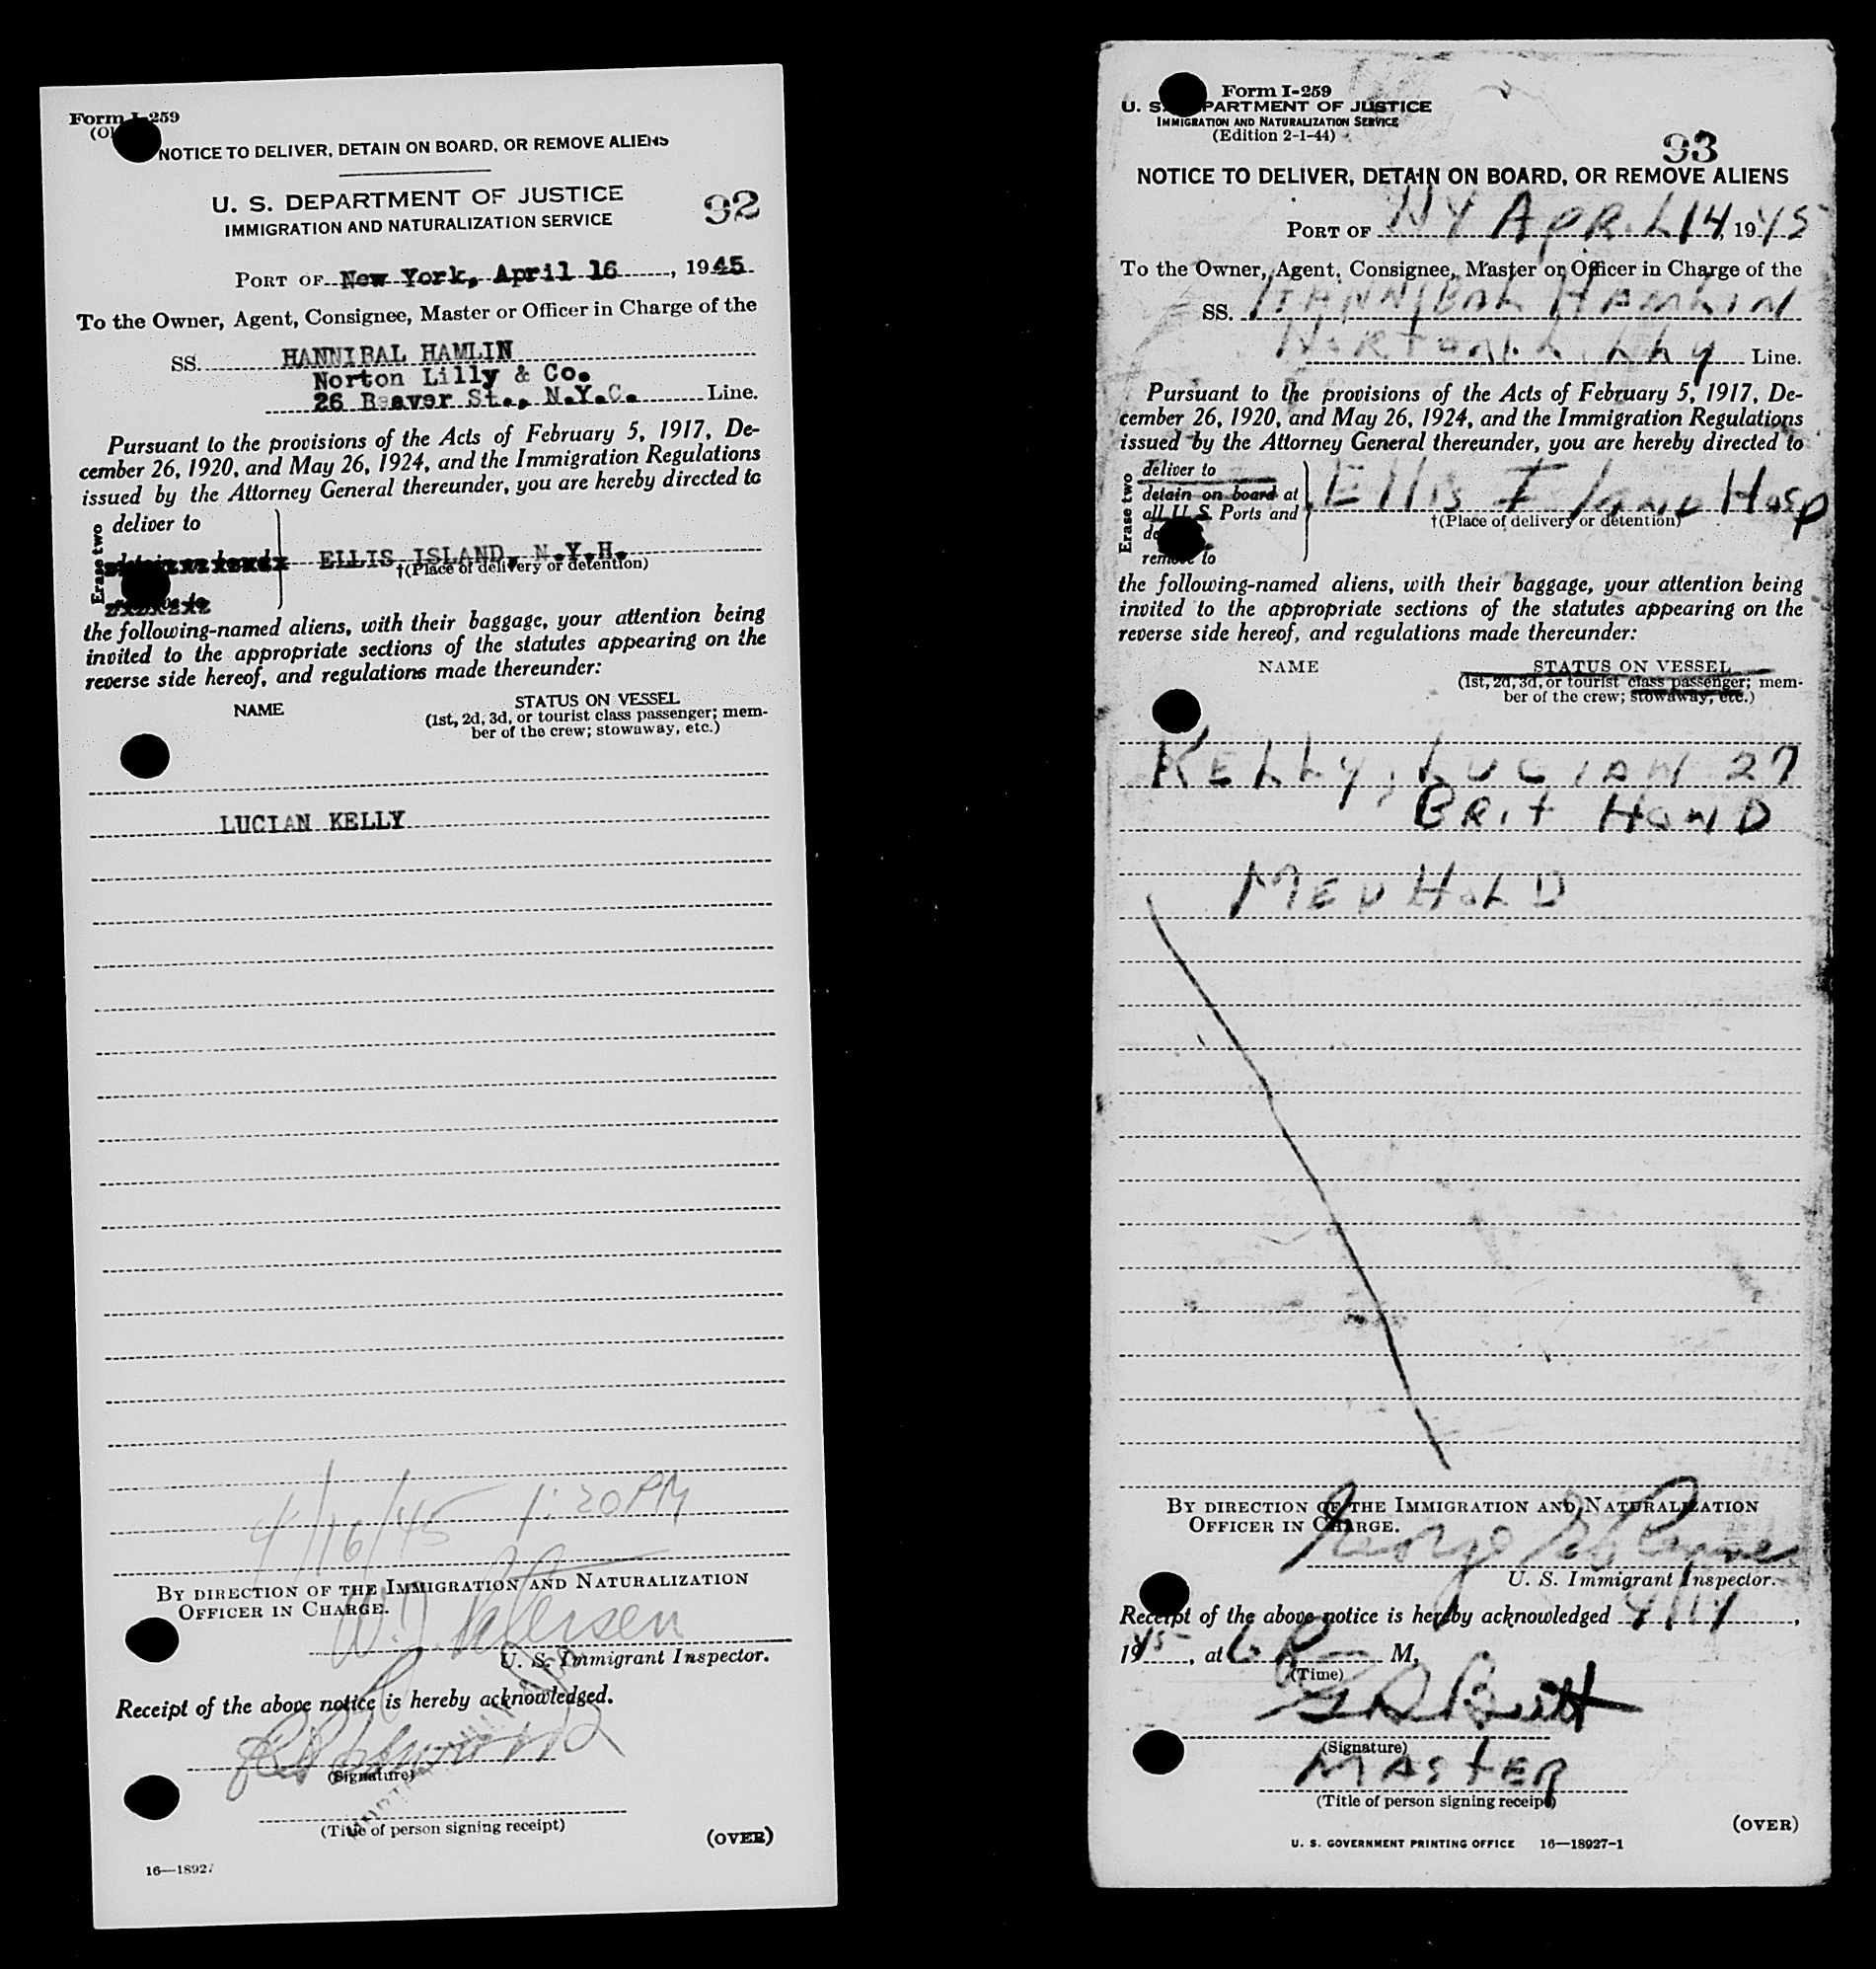 Form I-259
NOTICE TO DELIVER, DETAIN ON BOARD, OR REMOVE ALIENS
U. S. DEPARTMENT OF JUSTICE
IMMIGRATION AND NATURALIZATION SERVICE
92
PORT OF New York, April 16, 1945
To the Owner, Agent, Consignee, Master or Officer in Charge of the
SS. HANNIBAL HAMLIN
Norton Lilly & Co.
26 Beaver St., N.Y.C. Line.
Pursuant to the provisions of the Acts of February 5, 1917, De-
cember 26, 1920, and May 26, 1924, and the Immigration Regulations
issued by the Attorney General thereunder, you are hereby directed to
Erase two
deliver to
ELLIS ISLAND, N.Y.H.
†(Place of delivery or detention)
the following-named aliens, with their baggage, your attention being
invited to the appropriate sections of the statutes appearing on the
reverse side hereof, and regulations made thereunder:
NAME
STATUS ON VESSEL
(1st, 2d, 3d, or tourist class passenger; mem-
ber of the crew; stowaway, etc.)
LUCIAN KELLY
4/16/45 1:20PM
BY DIRECTION OF THE IMMIGRATION AND NATURALIZATION
OFFICER IN CHARGE.
U. S. Immigrant Inspector.
Receipt of the above notice is hereby acknowledged.
(Signature)
(Title of person signing receipt)
(OVER)
16—18927
Form I-259
U. S. DEPARTMENT OF JUSTICE
IMMIGRATION AND NATURALIZATION SERVICE
(Edition 2-1-44)
93
NOTICE TO DELIVER, DETAIN ON BOARD, OR REMOVE ALIENS
PORT OF NY APRIL 14, 1945
To the Owner, Agent, Consignee, Master or Officer in Charge of the
SS. HANNIBAL HAMLIN
Norton Lilly Line.
Pursuant to the provisions of the Acts of February 5, 1917, De-
cember 26, 1920, and May 26, 1924, and the Immigration Regulations
issued by the Attorney General thereunder, you are hereby directed to
Erase two
deliver to
detain on board at
all U. S. Ports and
remove to
Ellis Island Hosp
†(Place of delivery or detention)
the following-named aliens, with their baggage, your attention being
invited to the appropriate sections of the statutes appearing on the
reverse side hereof, and regulations made thereunder:
NAME
STATUS ON VESSEL
(1st, 2d, 3d, or tourist class passenger; mem-
ber of the crew; stowaway, etc.)
KELLY, LUCIAN 27
BRIT HOND
MED HOLD
BY DIRECTION OF THE IMMIGRATION AND NATURALIZATION
OFFICER IN CHARGE.
George
U. S. Immigrant Inspector.
Receipt of the above notice is hereby acknowledged 4/14,
1945, at 6 P M,
(Time)
(Signature)
MASTER
(Title of person signing receipt)
(OVER)
U. S. GOVERNMENT PRINTING OFFICE 16—18927-1